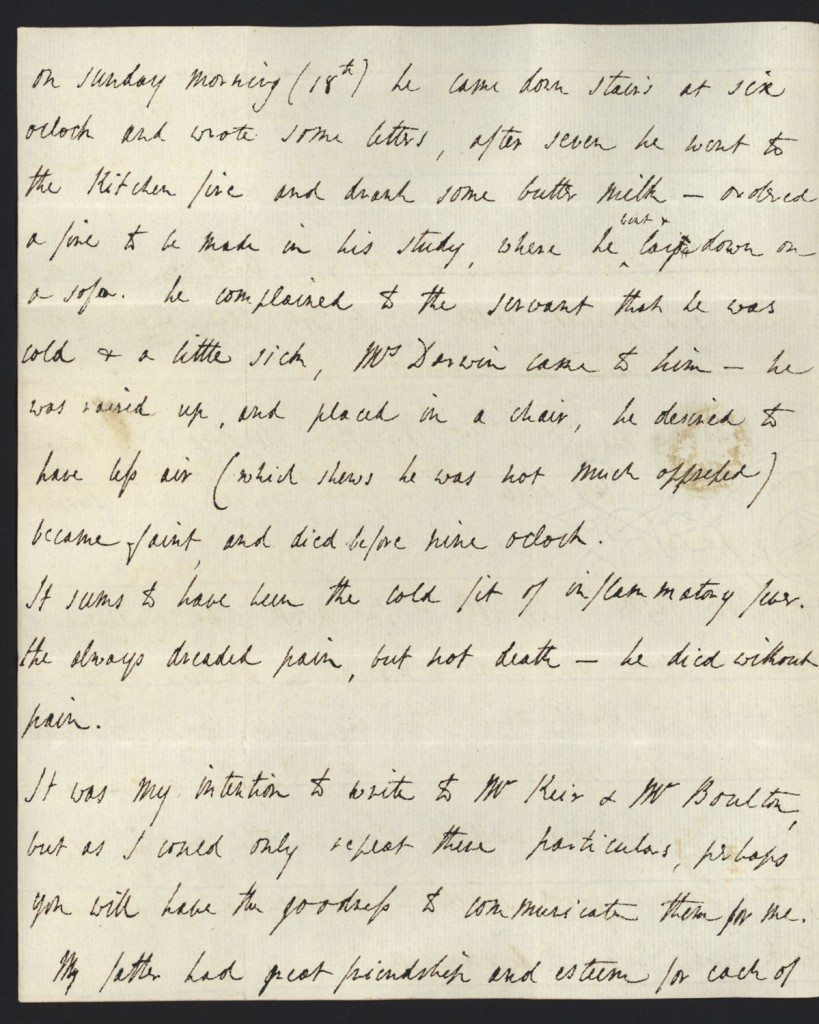 on sunday morning (18th) he came down stairs at six
oclock and wrote some letters, after seven he went to
the Kitchen fire and drank some butter milk — ordered
a fire to be made in his study, where he went & lay down on
a sofa. he complained to the servant that he was
cold & a little sick, Mrs Darwin came to him — he
was raised up, and placed in a chair, he desired to
have less air (which shews he was not much oppressed)
became faint, and died before nine oclock.
It seems to have been the cold fit of inflammatory fever.
He always dreaded pain, but not death — he died without
pain.
It was my intention to write to Mr Keir & Mr Boulton,
but as I could only repeat these particulars, perhaps
you will have the goodness to communicate them for me.
My father had great friendship and esteem for each of